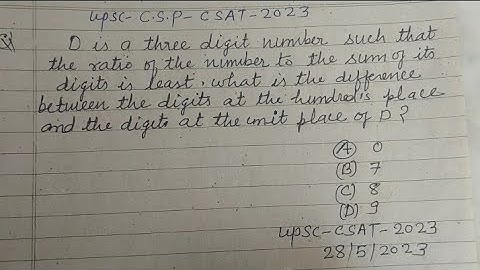 UPSC- C.S.P- CSAT-2023
D is a three digit number such that
the ratio of the number to the sum of its
digits is least. what is the difference
between the digits at the hundred's place
and the digits at the unit place of D?
(A) 0
(B) 7
(C) 8
(D) 9
UPSC-CSAT-2023
28/5/2023